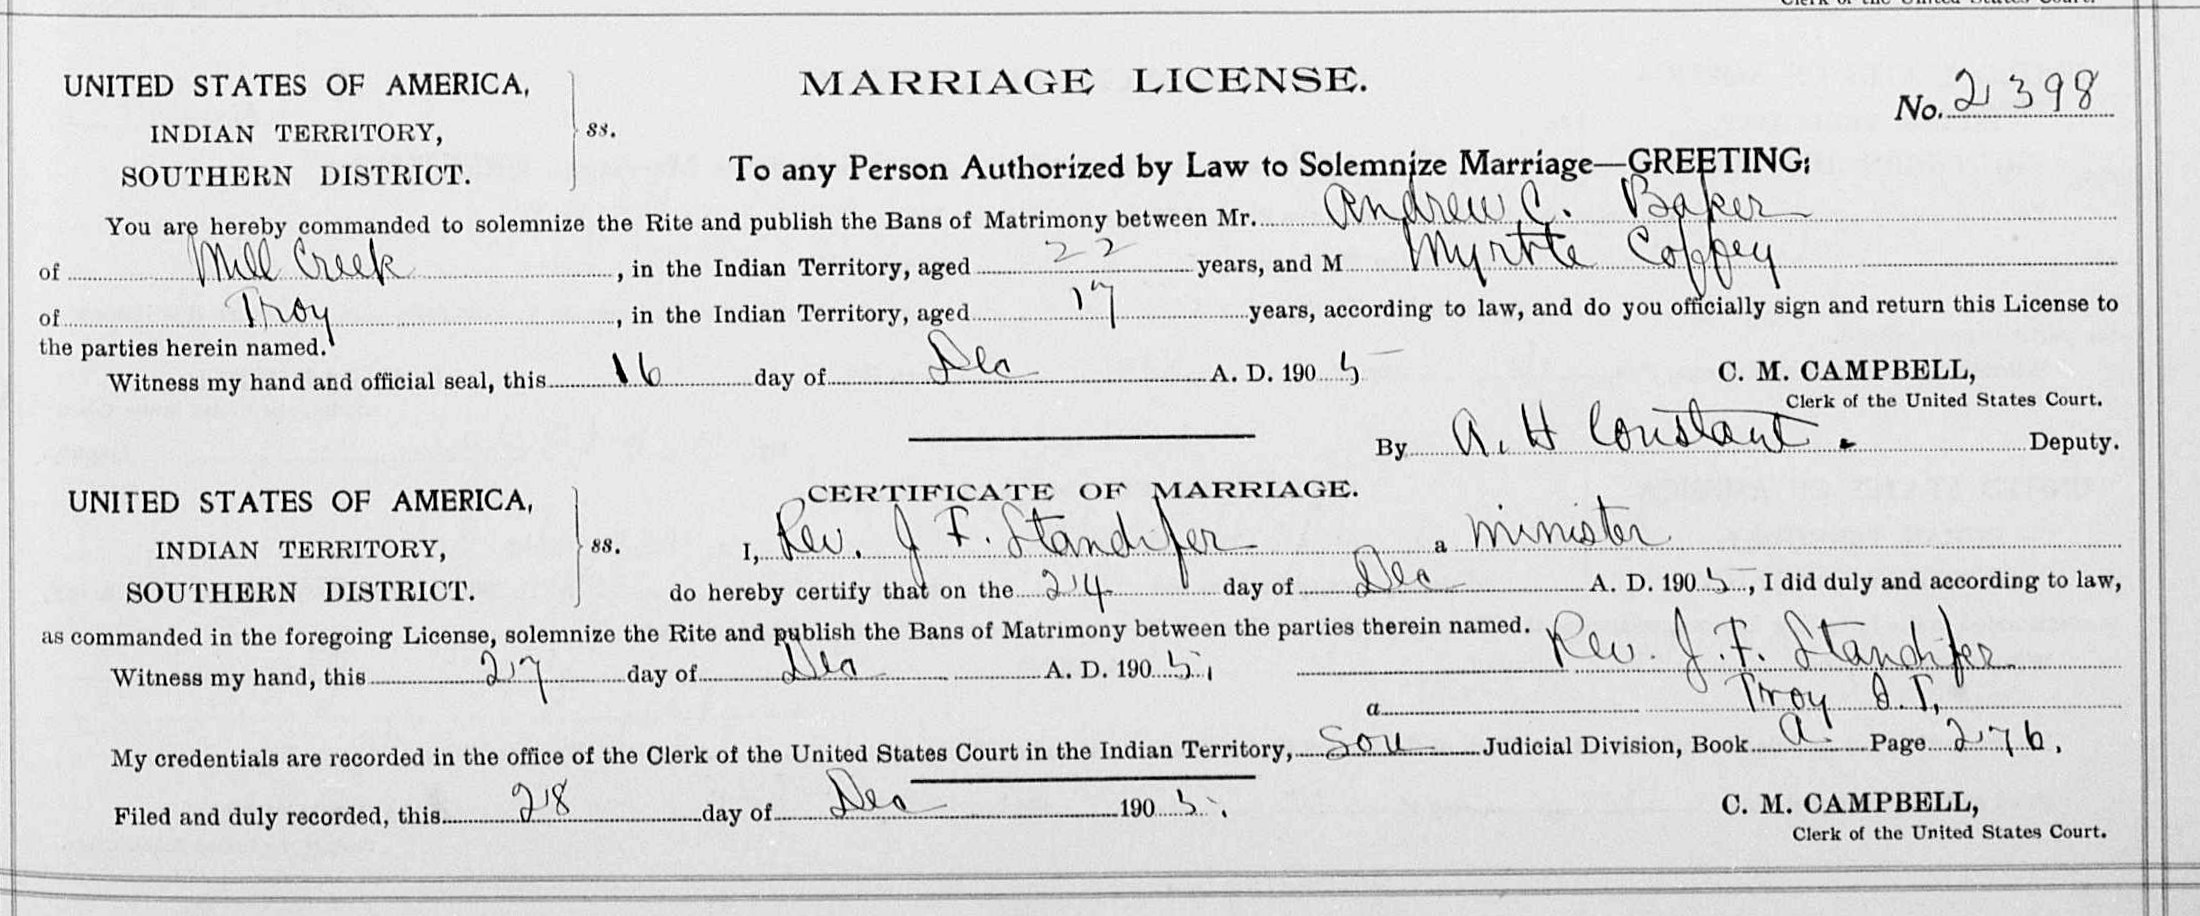 Clerk of the United States Court.
UNITED STATES OF AMERICA,
INDIAN TERRITORY,
SOUTHERN DISTRICT.
ss.
MARRIAGE LICENSE.
No. 2398
To any Person Authorized by Law to Solemnize Marriage—GREETING:
You are hereby commanded to solemnize the Rite and publish the Bans of Matrimony between Mr. Andrew C. Baker
of Mill Creek, in the Indian Territory, aged 22 years, and M Myrtte Coffey
of Troy, in the Indian Territory, aged 17 years, according to law, and do you officially sign and return this License to
the parties herein named.
Witness my hand and official seal, this 16 day of Dec A. D. 1905
C. M. CAMPBELL,
Clerk of the United States Court.
By A. H Constant. Deputy.
UNITED STATES OF AMERICA,
INDIAN TERRITORY,
SOUTHERN DISTRICT.
ss.
CERTIFICATE OF MARRIAGE.
I, Rev. J F. Standifer a minister
do hereby certify that on the 24 day of Dec A. D. 1905, I did duly and according to law,
as commanded in the foregoing License, solemnize the Rite and publish the Bans of Matrimony between the parties therein named.
Witness my hand, this 27 day of Dec A. D. 1905, Rev. J. F. Standifer
a Troy I. T,
My credentials are recorded in the office of the Clerk of the United States Court in the Indian Territory, Sou Judicial Division, Book A. Page 276.
Filed and duly recorded, this 28 day of Dec 1905.
C. M. CAMPBELL,
Clerk of the United States Court.